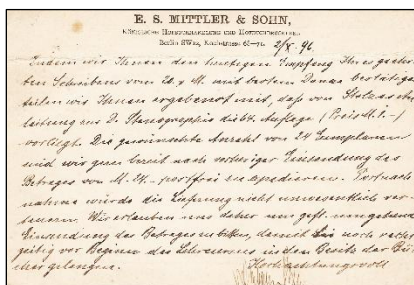 E. S. MITTLER & SOHN,
KÖNIGLICHE HOFBUCHHANDLUNG UND HOFBUCHDRUCKEREI
Berlin SW12, Kochstrasse 68–71. 2/X. 96
Indem wir Ihnen den heutigen Empfang Ihres geehr-
ten Schreibens vom 20. v. M. mit bestem Danke bestätigen
teilen wir Ihnen ergebenst mit, daß von
leitung zur D. Stenographie die 64. Auflage / Preis M. 1.– /
vorliegt. Die gewünschte Anzahl von 24 Exemplaren
sind wir gern bereit nach vorheriger Einsendung des
Betrages von M. 24.– portfrei zu expedieren. Postnach-
nahme würde die Lieferung nicht unwesentlich ver-
teuern. Wir erlauben uns daher um gefl. umgehende
Einsendung des Betrages zu bitten, damit Sie noch recht-
zeitig vor Beginn des in den Besitz der Bü-
cher gelangen.
Hochachtungsvoll